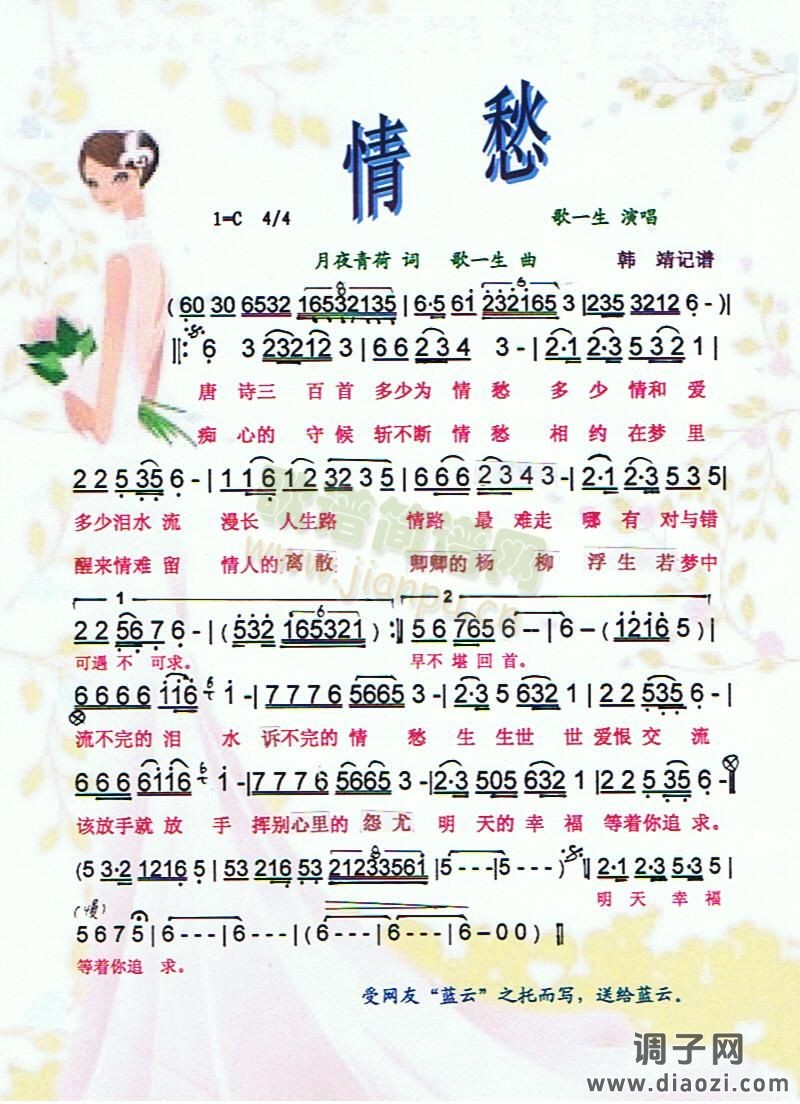 情 愁
1=C 4/4 歌一生 演唱
月夜青荷 词 歌一生 曲 韩 靖记谱
(60 30 6532 16532135 | 6·5 61 232165 3 | 235 3212 6 - )|
‖: 6 3 23212 3 | 6 6 2 3 4 3 - | 2·1 2·3 5 3 2 1 |
唐 诗三 百首 多少为 情愁 多少 情和 爱
痴 心的 守候 斩不断 情愁 相约 在梦 里
2 2 5 35 6 - | 1 1 6 1 2 3 2 3 5 | 6 6 6 2 3 4 3 - | 2·1 2·3 5 3 5 |
多少泪水 流 漫长 人生路 情路 最 难走 哪 有 对与错
醒来情难 留 情人的 离散 卿卿的 杨 柳 浮生 若 梦中
1 2
2 2 56 7 6 - | (532 165321) :‖ 5 6 765 6 - - | 6 - (1216 5) |
可遇 不 可求。 早不 堪 回首。
6 6 6 6 116 1 - | 7 7 7 6 5665 3 - | 2·3 5 632 1 | 2 2 535 6 - |
流不完的 泪 水 诉不完的 情 愁 生 生世 世 爱恨 交 流
6 6 6 6 6116 1 - | 7 7 7 6 5665 3 - | 2·3 505 632 1 | 2 2 5 35 6 - ‖
该放手就 放 手 挥别心里的 怨尤 明 天的 幸 福 等着你追 求。
(5 3·2 1216 5 | 53 216 53 21233561 | 5 - - - | 5 - - - ) ‖ 2·1 2·3 5·3 5 |
明 天 幸 福
(慢)
5 6 7 5 | 6 - - - | 6 - - - | (6 - - - | 6 - - - | 6 - 0 0 ) ‖
等着你追 求。
受网友“蓝云”之托而写，送给蓝云。
歌谱简谱网
www.jianpu.cn
调子网
www.diaozi.com